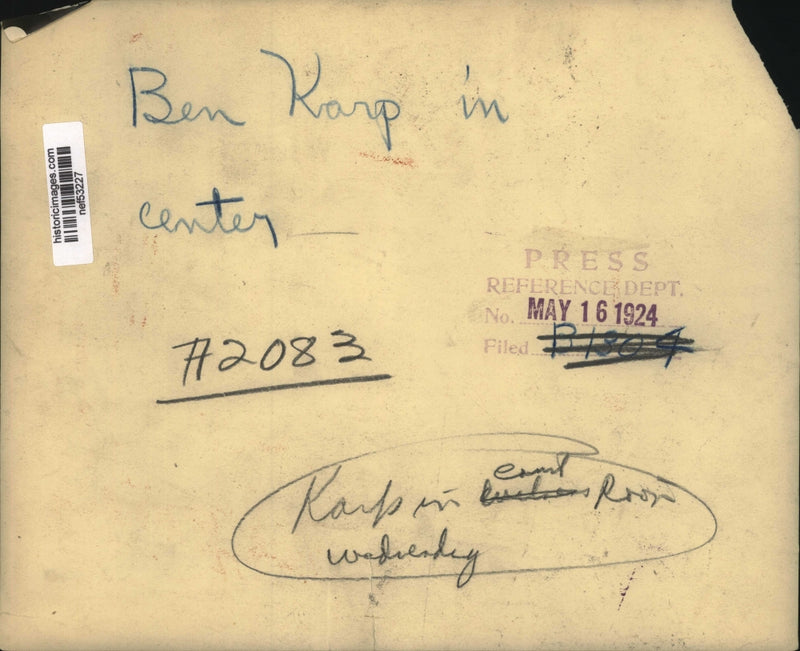 Ben Karp in
center
historicimages.com
nef53227
PRESS
REFERENCE DEPT.
No. MAY 16 1924
Filed B1804
#2083
court
Karp in Room
Wednesday